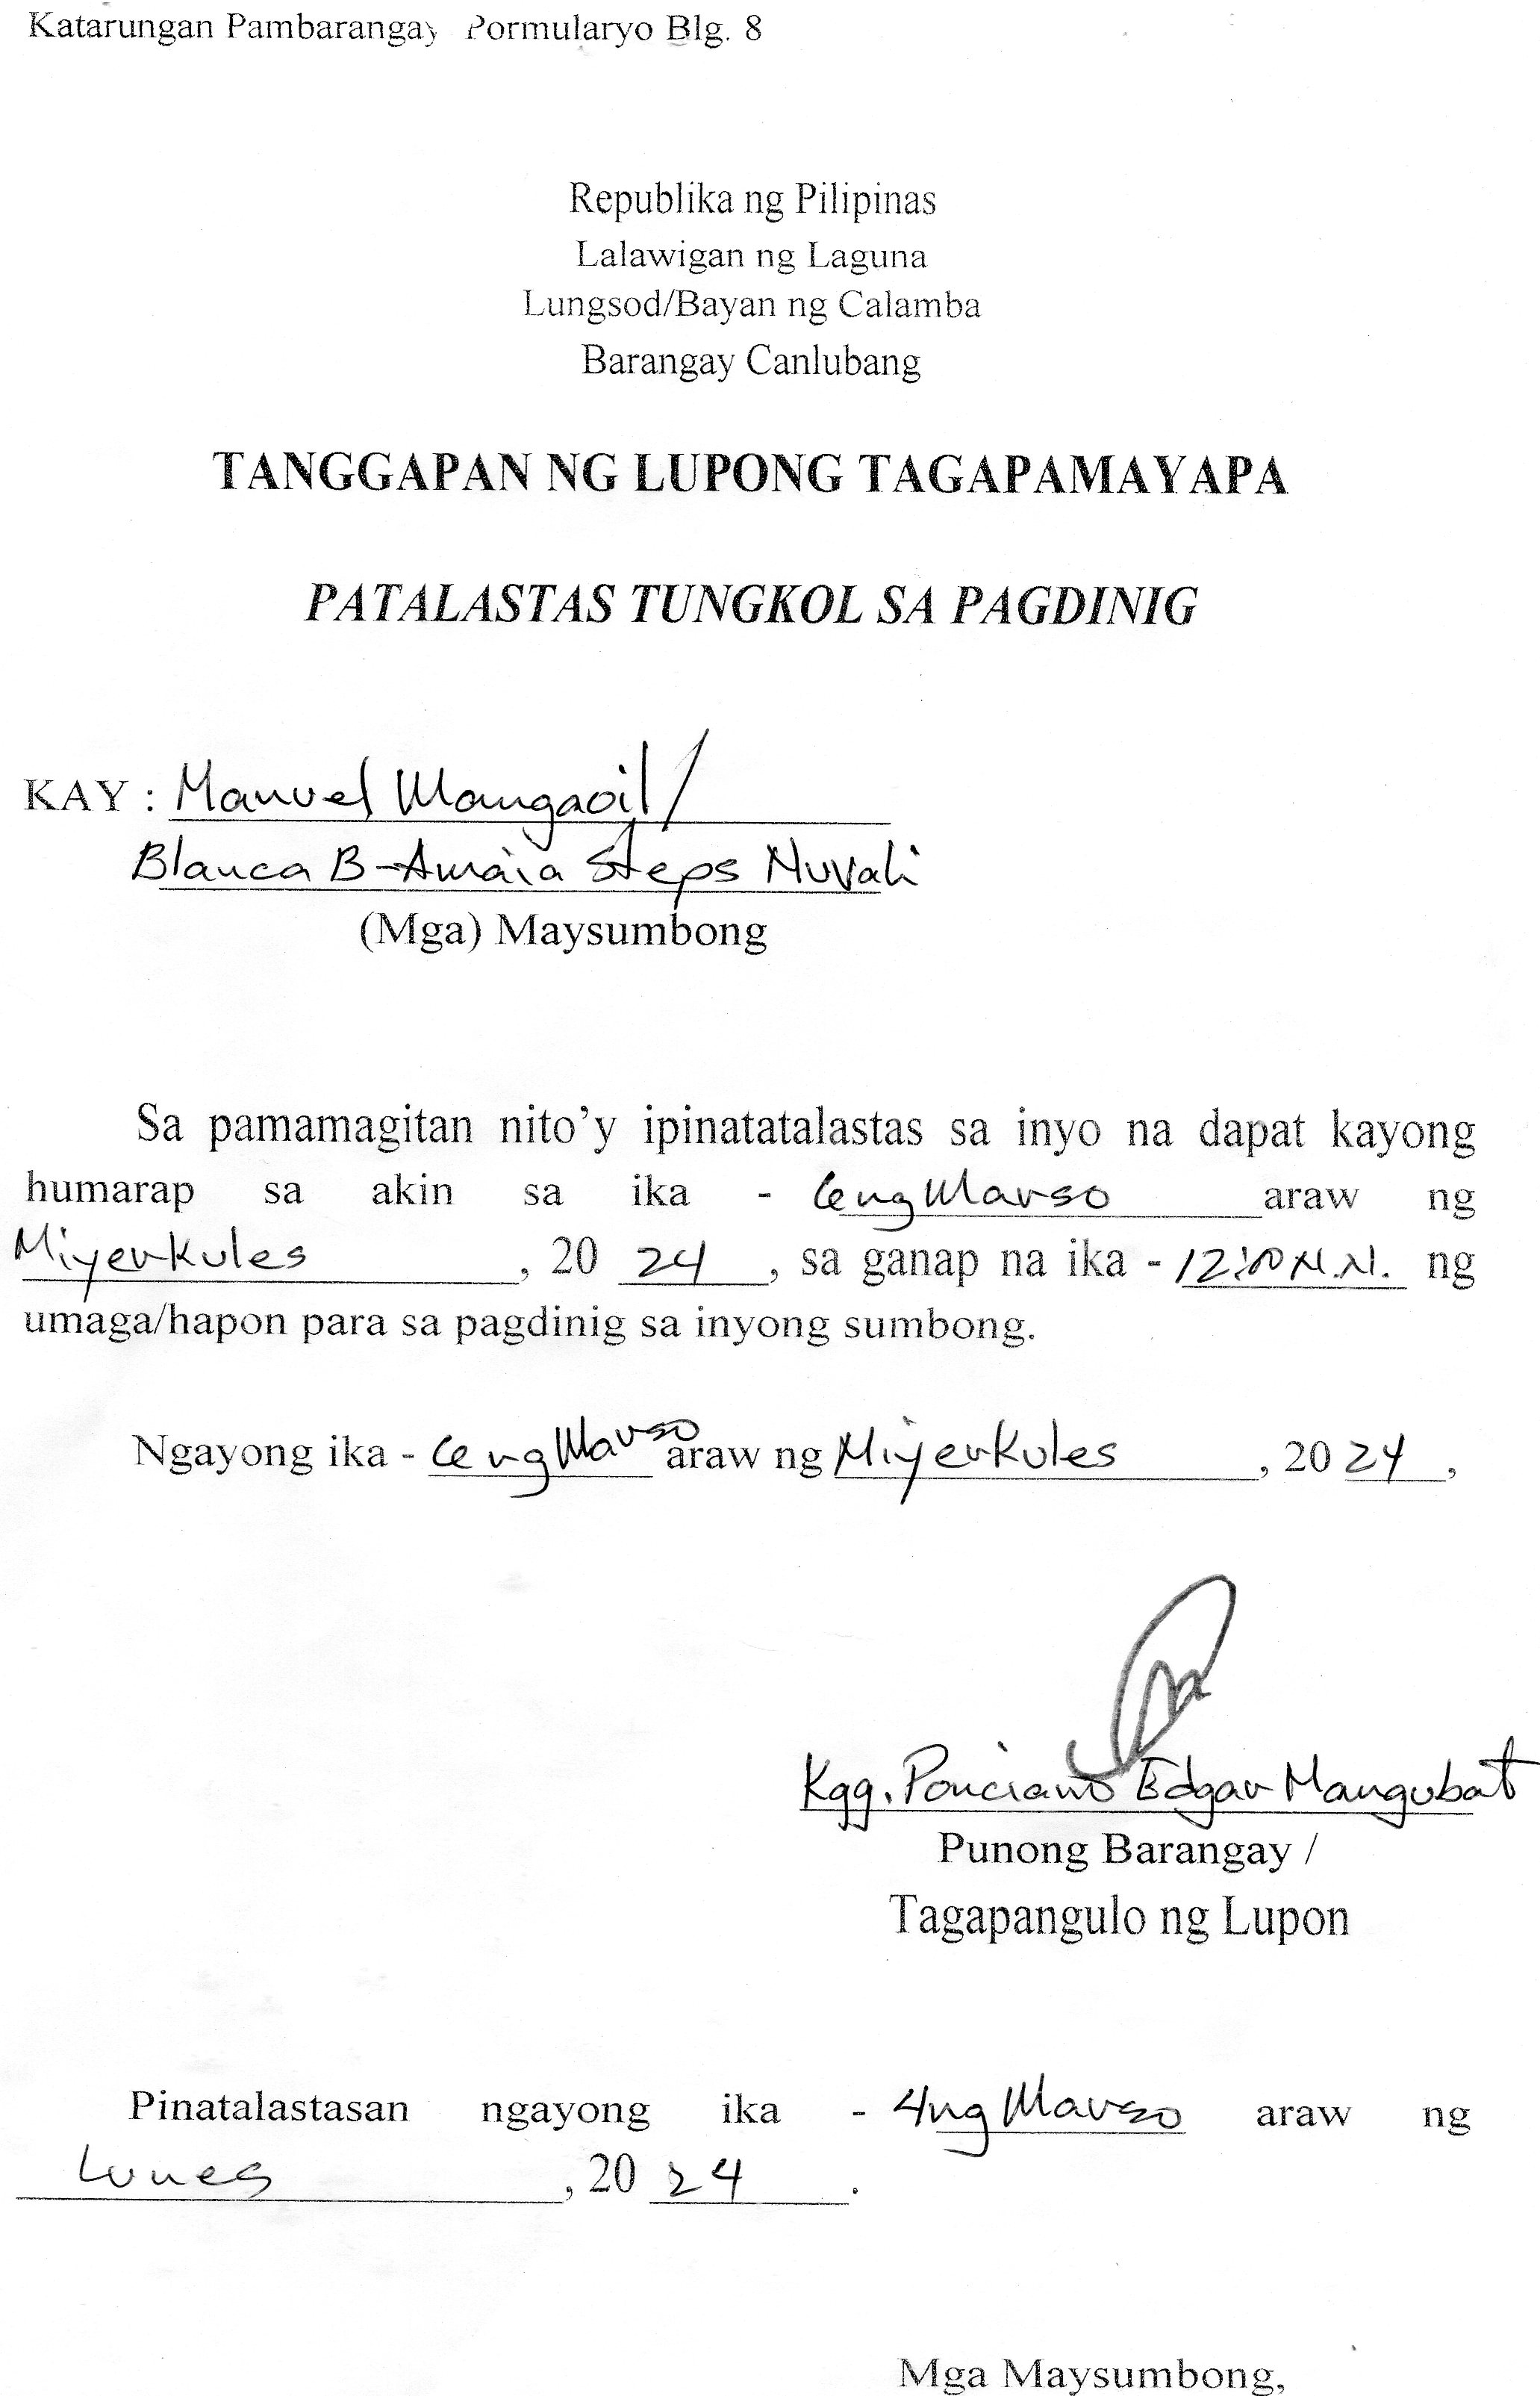 Katarungan Pambarangay Pormularyo Blg. 8
Republika ng Pilipinas
Lalawigan ng Laguna
Lungsod/Bayan ng Calamba
Barangay Canlubang
TANGGAPAN NG LUPONG TAGAPAMAYAPA
PATALASTAS TUNGKOL SA PAGDINIG
KAY : Manuel Mangaoil/
Blanca B-Amaia Steps Nuvali
(Mga) Maysumbong
Sa pamamagitan nito’y ipinatatalastas sa inyo na dapat kayong
humarap sa akin sa ika - 6 ng Marso araw ng
Miyerkules, 20 24, sa ganap na ika - 12:00 N.N. ng
umaga/hapon para sa pagdinig sa inyong sumbong.
Ngayong ika - 6 ng Marso araw ng Miyerkules, 20 24,
Kgg. Ponciano Edgar Mangubat
Punong Barangay /
Tagapangulo ng Lupon
Pinatalastasan ngayong ika - 4 ng Marso araw ng
Lunes, 20 24.
Mga Maysumbong,